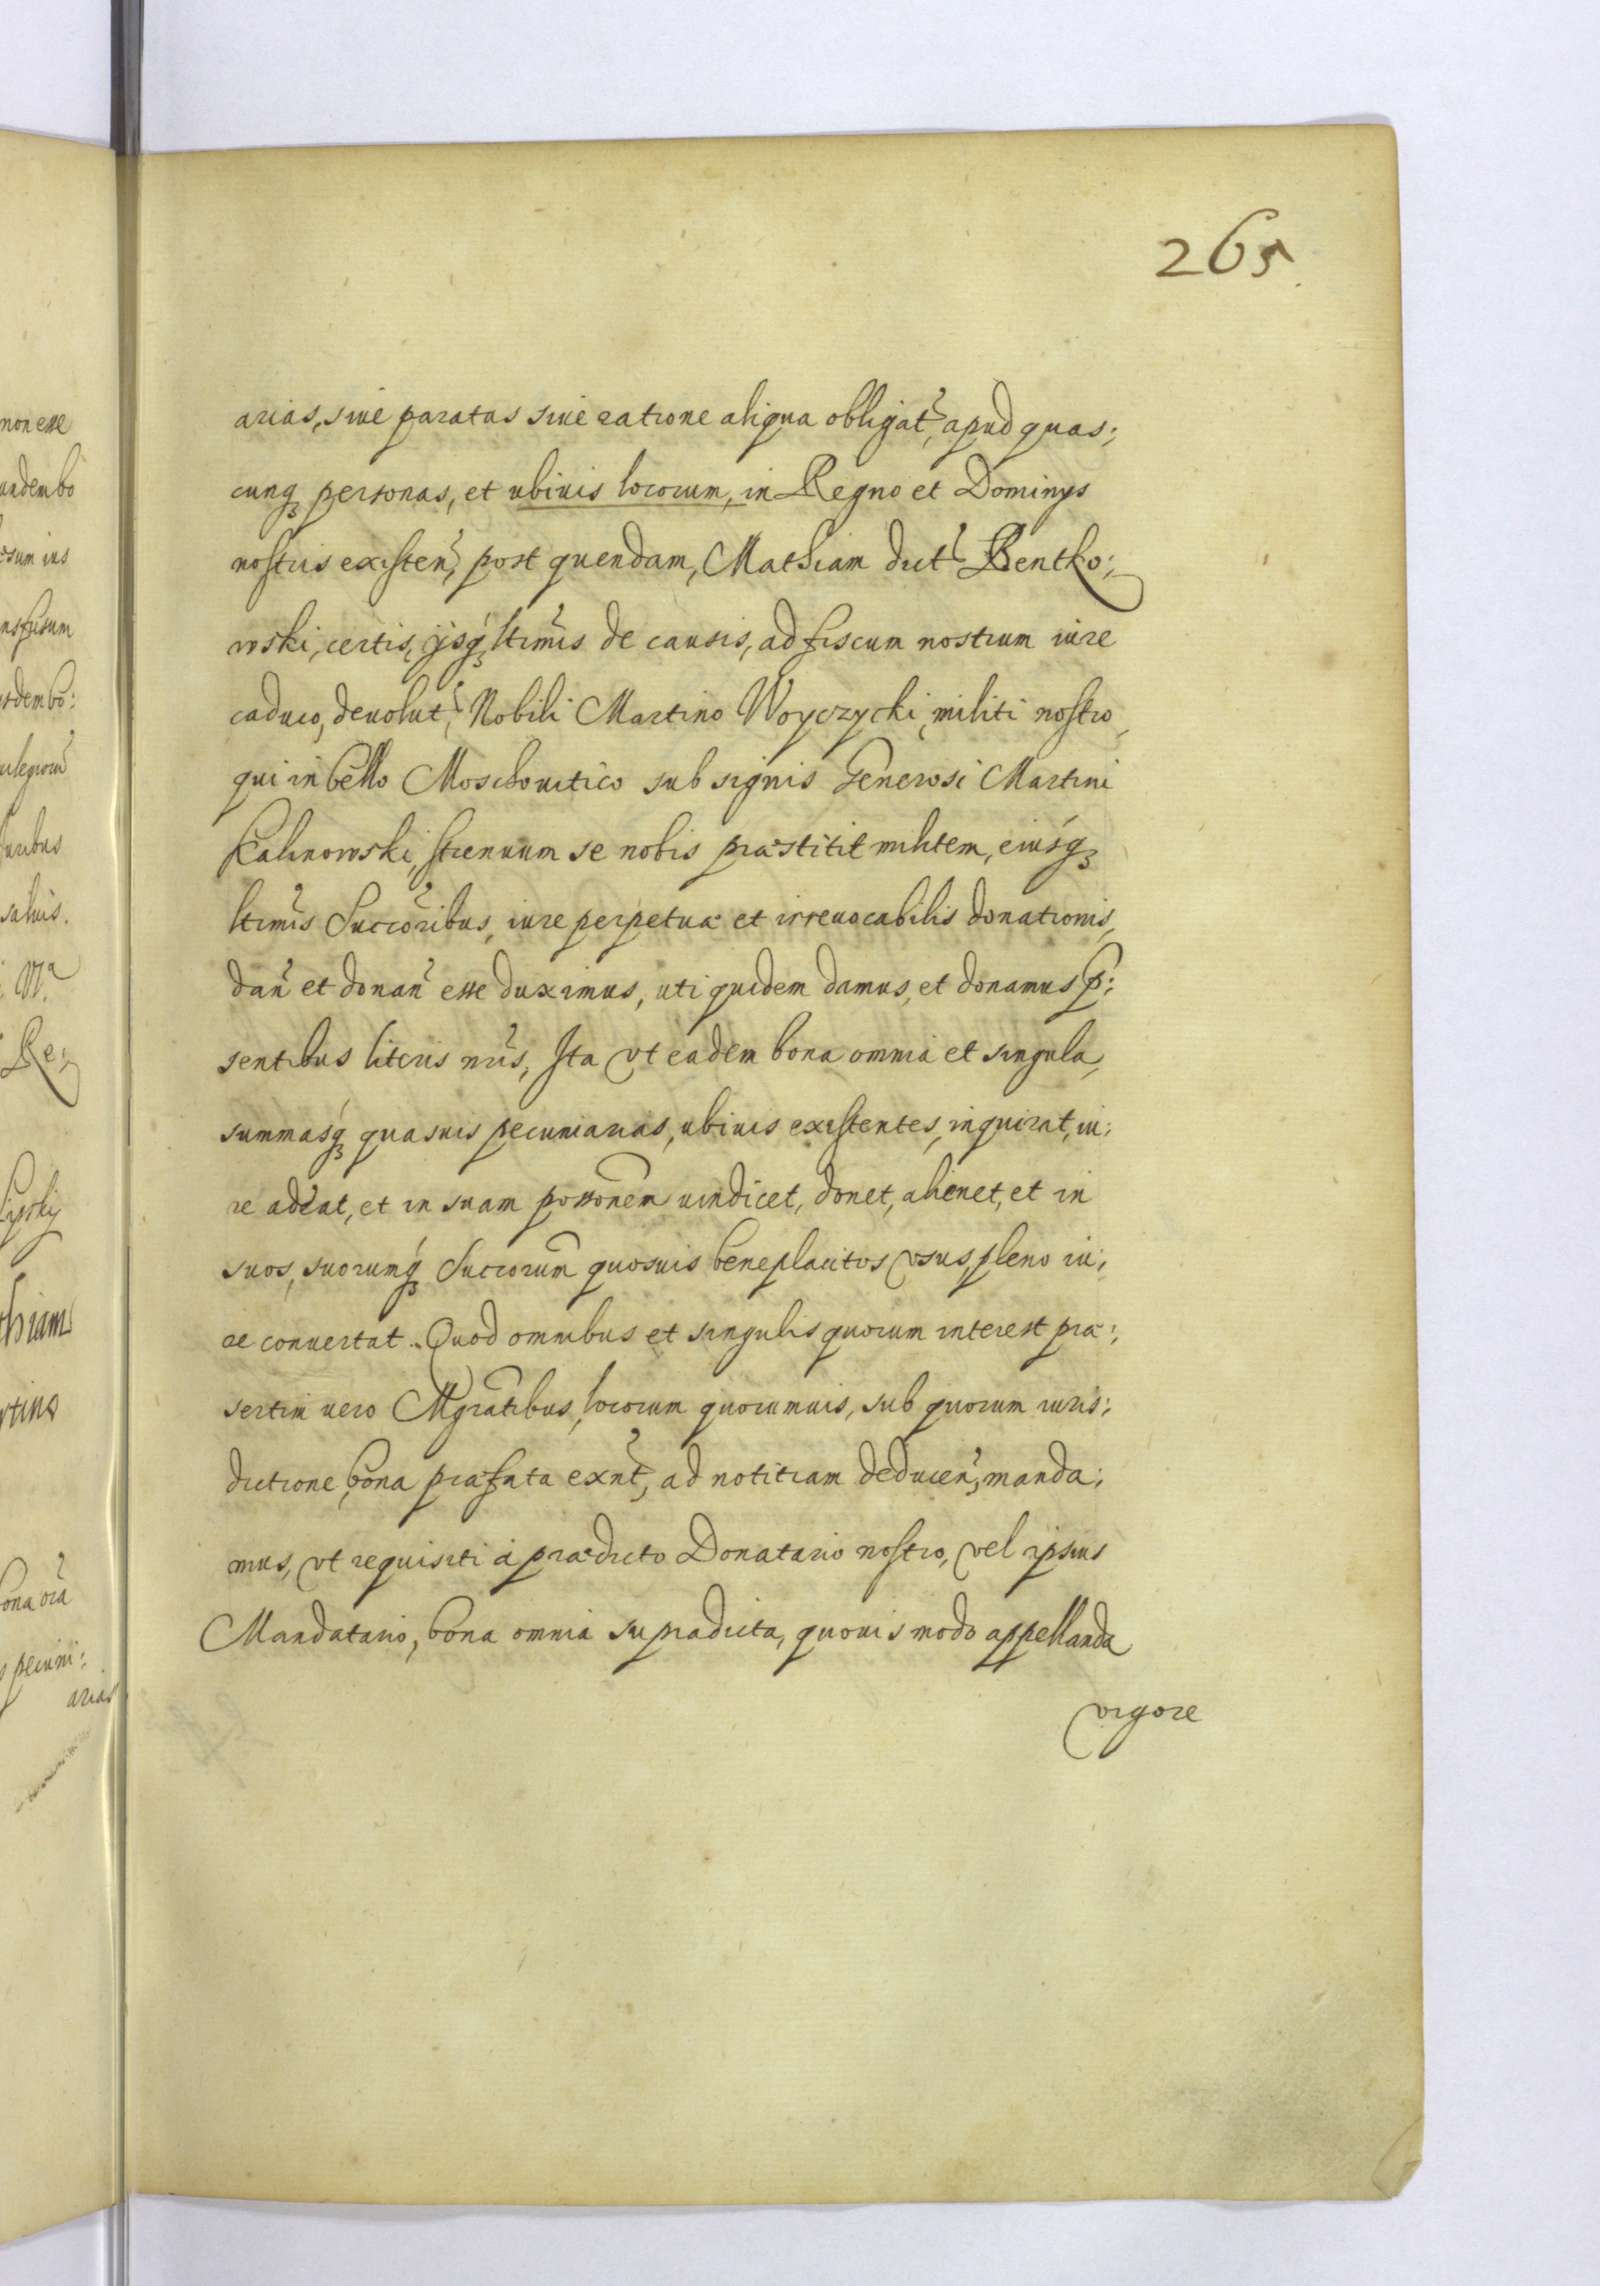 265
arias, siue paratas siue ratione aliqua obligat̃, apud quas:
cunqꝫ personas, et ubiuis locorum, in Regno et Dominys
nostris existeñ, post quendam, Mathiam dict̃ Bentko:
wski, certis, ijsqꝫ ltimis de causis, ad fiscum nostrum iure
caduco, deuolut̃, Nobili Martino Woyczycki, militi nostro,
qui in bello Moschouitico sub signis Generosi Martini
Kalinowski, strenuum se nobis præstitit militem, eiusqꝫ
ltimis Succoribus, iure perpetuæ et irreuocabilis donationis,
dañ et donañ esse duximus, uti quidem damus, et donamus p̃:
sentibus literis nr̃is, Ita vt eadem bona omnia et singula,
summasqꝫ quasuis pecuniarias, ubiuis existentes, inquirat, iu:
re adeat, et in suam possonem uindicet, donet, alienet, et in
suos, suorumqꝫ Succorum quosuis beneplacitos vsus, pleno iu:
re conuertat. Quod omnibus et singulis quorum interest præ:
sertim uero Mgratibus, locorum quorumuis, sub quorum iuris:
dictione, bona præfata exnt̃, ad notitiam deduceñ, manda:
mus, vt requisiti à prædicto Donatario nostro, vel ipsius
Mandatario, bona omnia supradicta, quouis modo appellanda
vigore
non esse
andem bo
sum ius
nsfusum
sdem bo:
uribus
saluis.
Re:
thiam
rtino
bona oĩa
pecuni:
arias